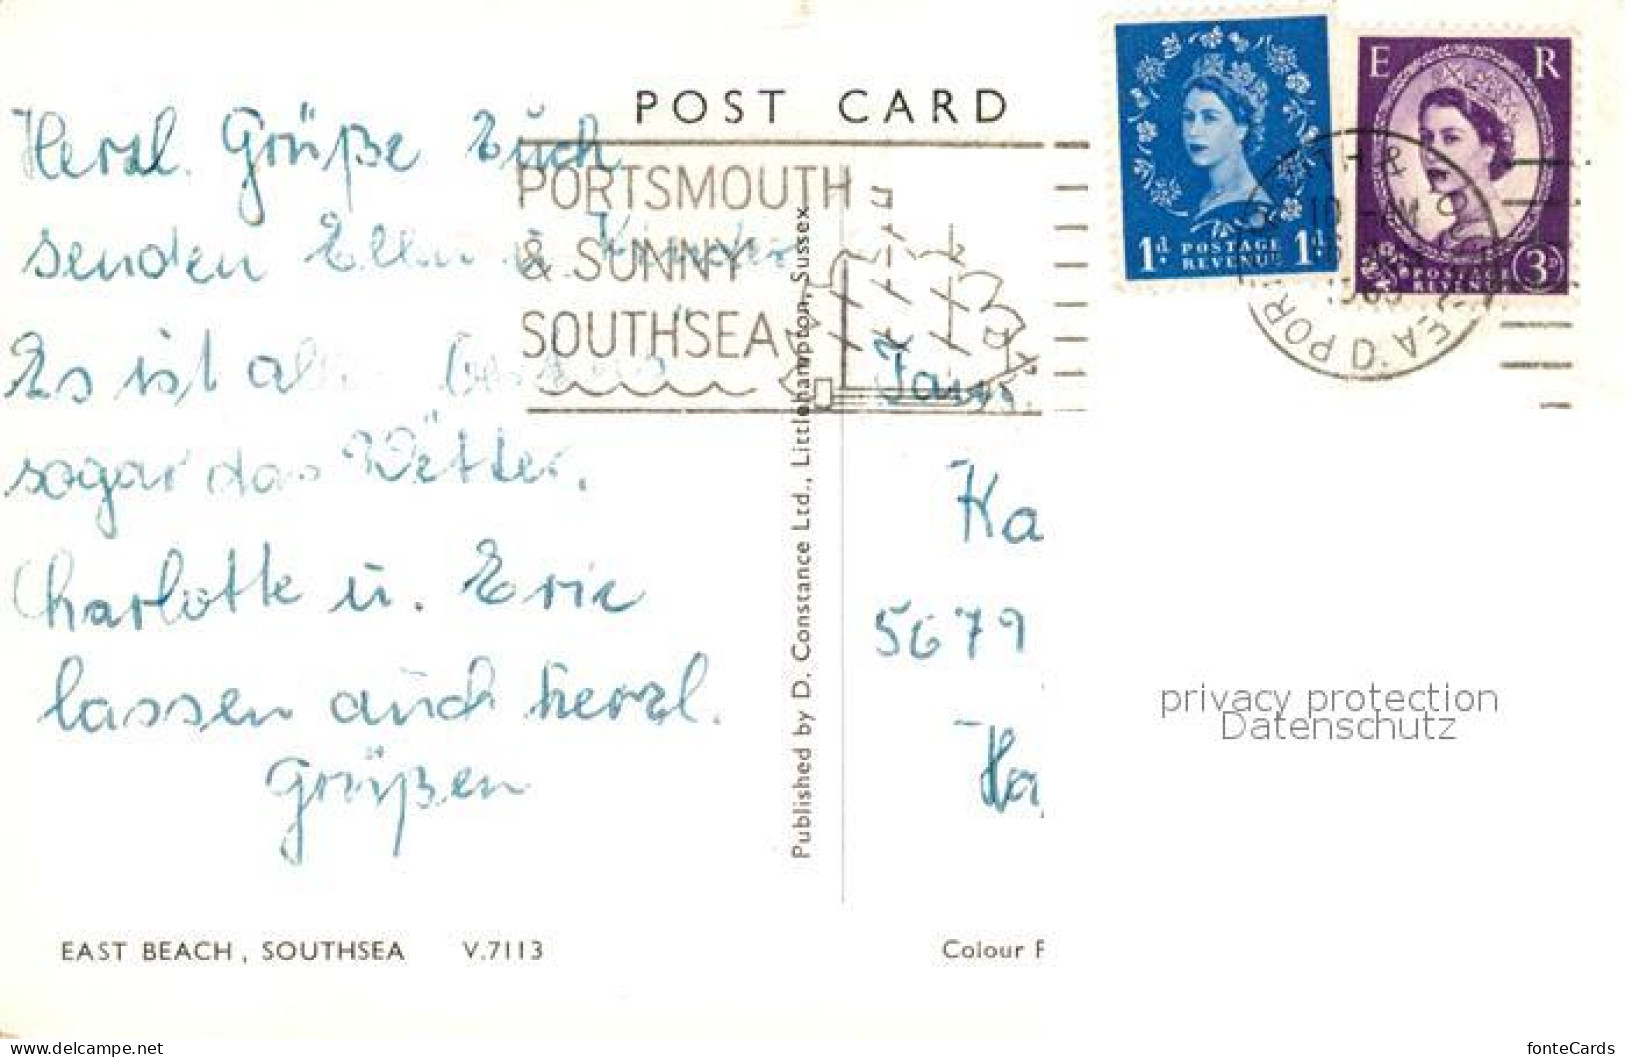 POST CARD
Herzl. Grüße Euch
senden Ellen u. Kinder
Es ist alles bestens
sogar das Wetter.
Charlotte u. Eric
lassen auch herzl.
Grüßen
PORTSMOUTH
& SUNNY
SOUTHSEA
1d. POSTAGE 1d.
REVENUE
E R
POSTAGE 3D
REVENUE
Published by D. Constance Ltd., Littlehampton, Sussex
Fam.
Ka
5679
EAST BEACH, SOUTHSEA V.7113
Colour
privacy protection
Datenschutz
www.delcampe.net
fonteCards